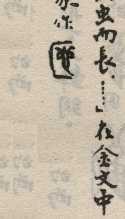 虫而長……」在金文中
作